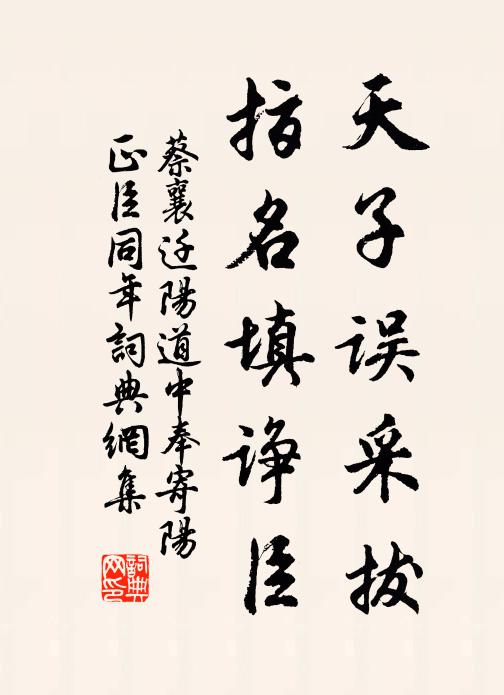 天子误采拔
指名填诤臣
蔡襄迁陽道中奉寄陽
正臣同年詞典網集
詞典网印